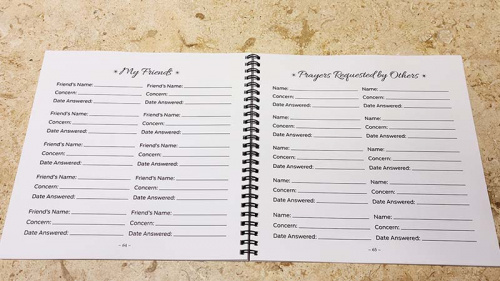 My Friends
Friend's Name: Friend's Name:
Concern: Concern:
Date Answered: Date Answered:
Friend's Name: Friend's Name:
Concern: Concern:
Date Answered: Date Answered:
Friend's Name: Friend's Name:
Concern: Concern:
Date Answered: Date Answered:
Friend's Name: Friend's Name:
Concern: Concern:
Date Answered: Date Answered:
Friend's Name: Friend's Name:
Concern: Concern:
Date Answered: Date Answered:
Prayers Requested by Others
Name: Name:
Concern: Concern:
Date Answered: Date Answered:
Name: Name:
Concern: Concern:
Date Answered: Date Answered:
Name: Name:
Concern: Concern:
Date Answered: Date Answered:
Name: Name:
Concern: Concern:
Date Answered: Date Answered:
Name: Name:
Concern: Concern:
Date Answered: Date Answered:
- 65 -